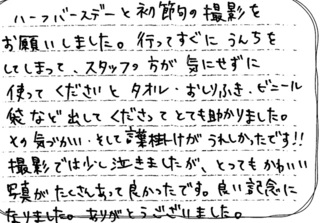 ハーフバースデーと初節句の撮影を
お願いしました。行ってすぐにうんちを
してしまって、スタッフの方が気にせずに
使ってくださいとタオル・おしりふき・ビニール
袋など出してくださってとても助かりました。
その気づかい・そして声掛けがうれしかったです!!
撮影では少し泣きましたが、とってもかわいい
写真がたくさんあって良かったです。良い記念に
なりました。ありがとうございました。